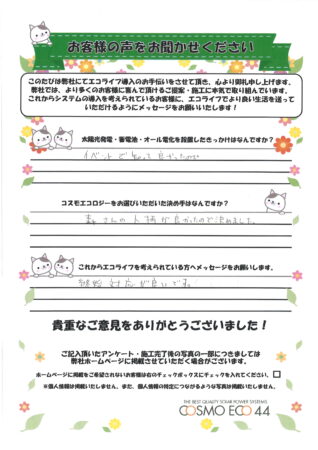 お客様の声をお聞かせください
このたびは弊社にてエコライフ導入のお手伝いをさせて頂き、心より御礼申し上げます。
弊社では、より多くのお客様に喜んで頂けるご提案・施工に本気で取り組んでいます。
これからシステムの導入を考えられているお客様に、エコライフでより良い生活を送って
いただけるようにメッセージをお願いいたします！
太陽光発電・蓄電池・オール電化を設置したきっかけはなんですか？
イベントで知って良かったので
コスモエコロジーをお選びいただいた決め手はなんですか？
さんの人柄が良かったので決めました。
これからエコライフを考えられている方へメッセージをお願いします。
対応が良いです。
貴重なご意見をありがとうございました！
ご記入頂いたアンケート・施工完了後の写真の一部につきましては
弊社ホームページに掲載させていただく場合がございます。
ホームページに掲載をご希望されないお客様は右のチェックボックスにチェックを入れてください。
※個人情報は掲載いたしません。また、個人情報の特定につながるような写真は掲載いたしません。
THE BEST QUALITY SOLAR POWER SYSTEMS
COSMO ECO 44